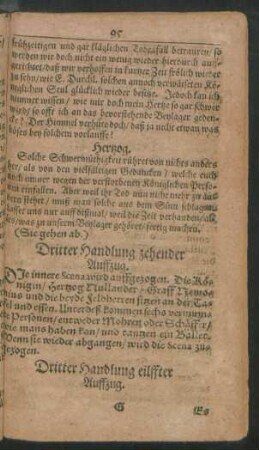 95
frühzeitigen und gar kläglichen Todesfall betrauren / so
werden wir doch nicht ein wenig wieder hierdurch auf-
wir verhoffen in kurtzer Zeit frölich wieder
zu sehn / wie E. Durchl. solchen annoch verwäiseten Kö-
niglichen Seul glücklich wieder besitze. Jedoch kan ich
nimmer wissen / wie mir doch mein Hertze so gar schwer
wird / so offt ich an das bevorstehende Beylager geden-
cke. Der Himmel verhüte doch / daß ja nicht etwan was
böses bey solchem vorlauffe!
Hertzog.
Solche Schwermüthigkeit rühret von nichts anders
her / als von den vielfältigen Gedancken / welche euch
noch immer wegen der verstorbenen Königlichen Perso-
nen einfallen. Aber weil der Tod nun nicht mehr zu än-
dern stehet / muß man solche aus dem Sinn schlagen.
Lasset uns nur auff dißmal / weil die Zeit verhanden / alles /
was zu unserm Beylager gehöret / fertig machen.
(Sie gehen ab.)
Dritter Handlung zehender
Auffzug.
DIe innere Scena wird auffgezogen. Die Kö-
nigin / Hertzog Nullander / Graff Nemo-
nius und die beyde Feldherren sitzen an der Ta-
fel und essen. Unterdeß kommen sechs vermum-
te Personen / entweder Mohren oder Schäffer /
wie mans haben kan / und tantzen ein Ballet.
Wenn sie wieder abgangen / wird die Scena zu-
gezogen.
Dritter Handlung eilffter
Auffzug.
G
Es